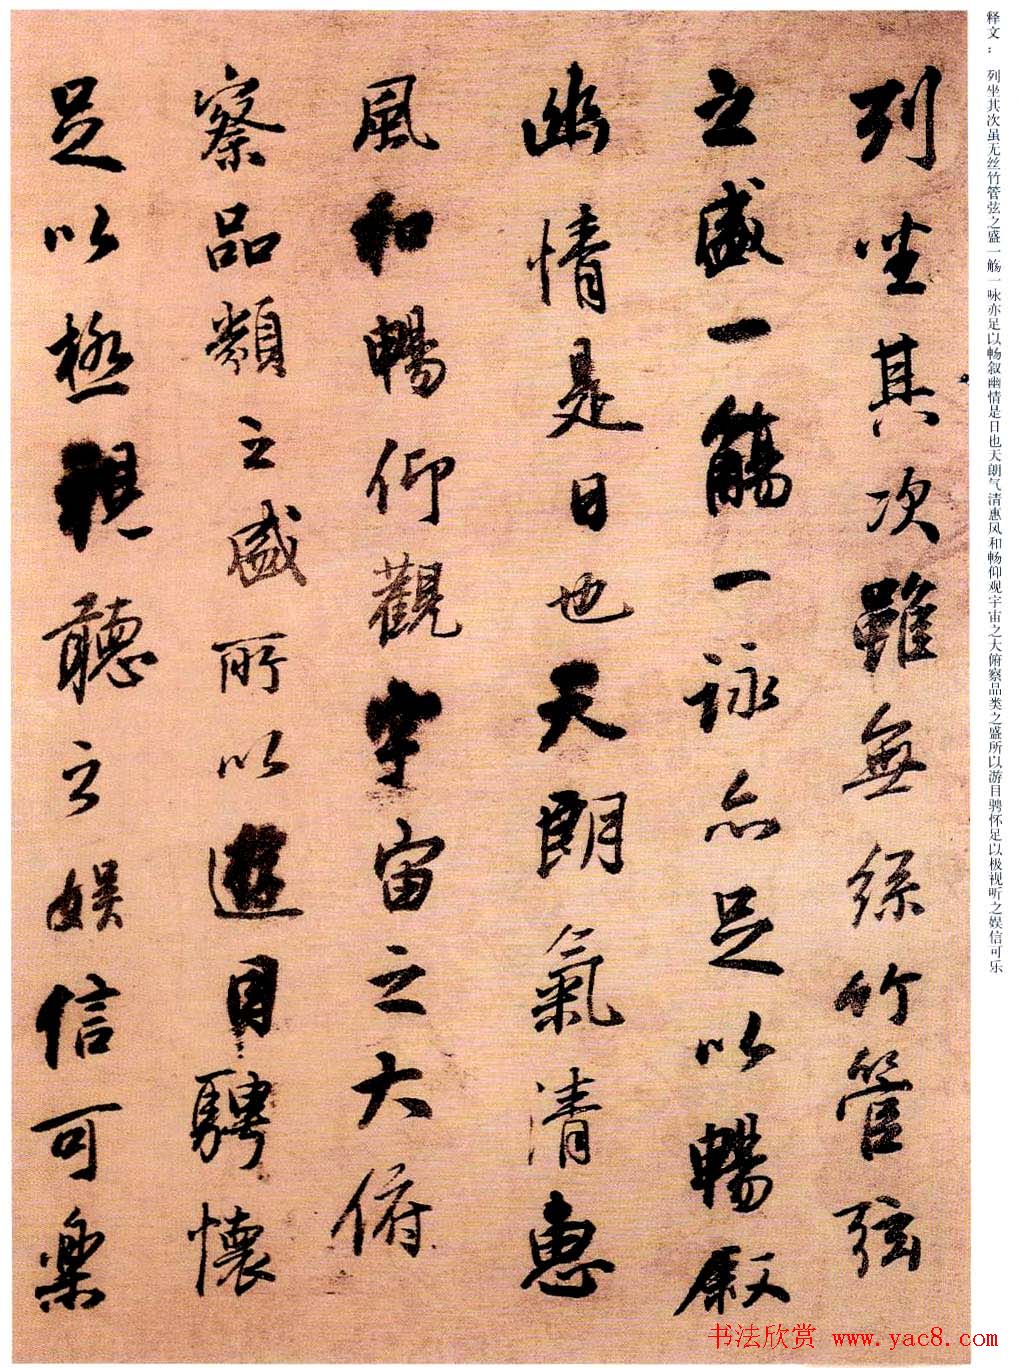 释文：列坐其次虽无丝竹管弦之盛一觞一咏亦足以畅叙幽情是日也天朗气清惠风和畅仰观宇宙之大俯察品类之盛所以游目骋怀足以极视听之娱信可乐
列坐其次雖無絲竹管弦
之盛一觴一詠亦足以暢叙
幽情是日也天朗氣清惠
風和暢仰觀宇宙之大俯
察品類之盛所以遊目騁懷
足以極視聽之娛信可樂
书法欣赏 www.yac8.com